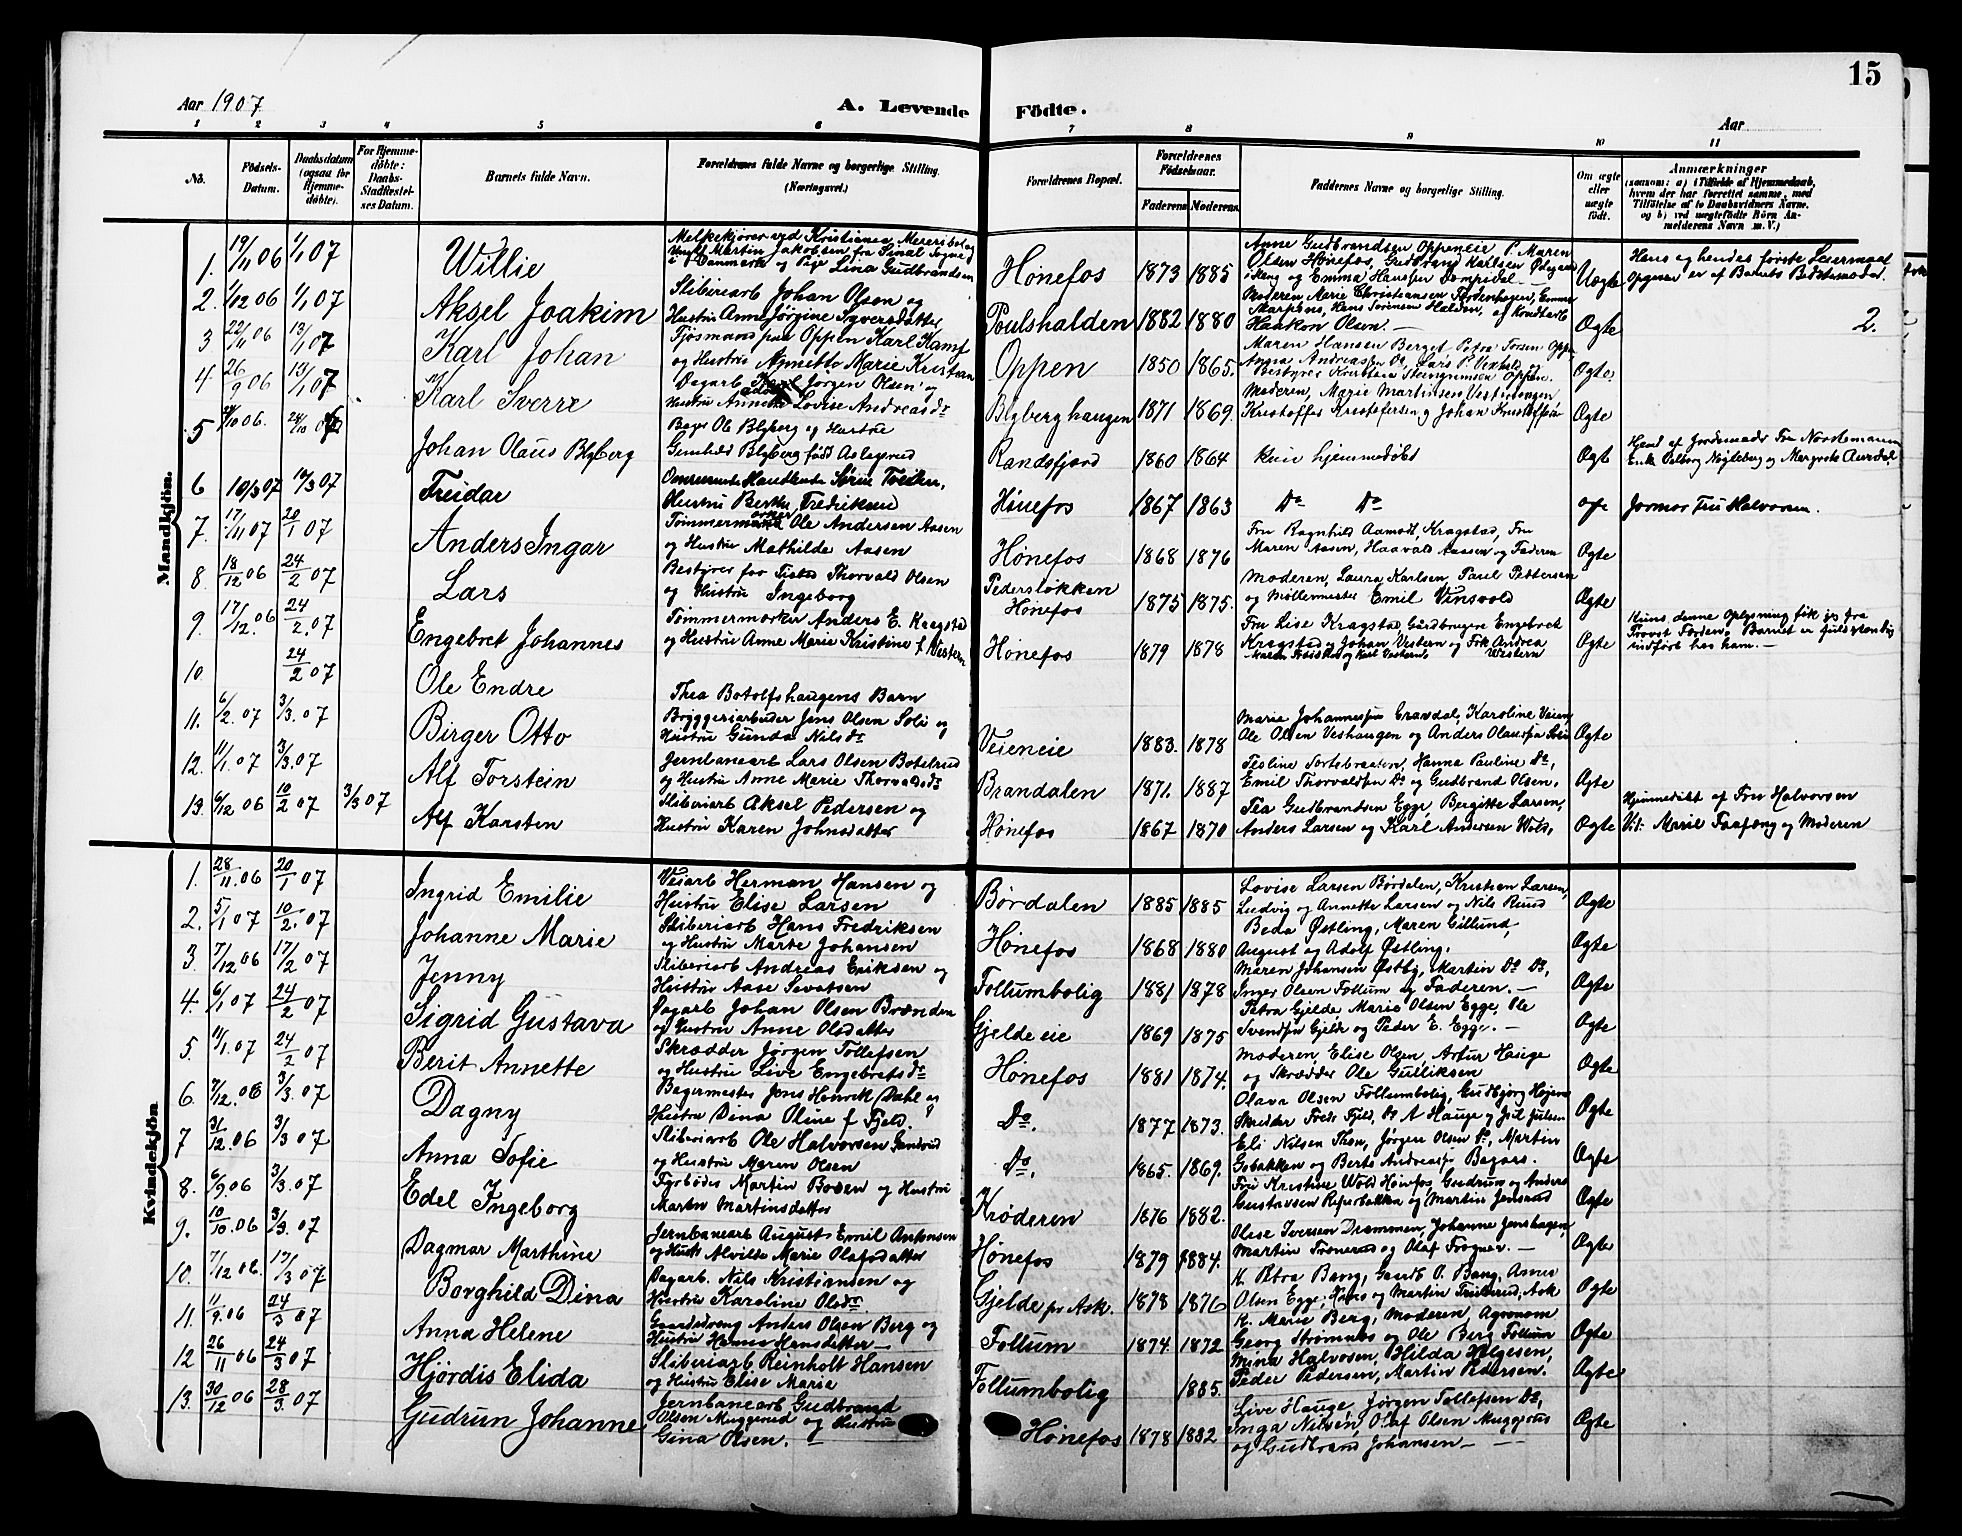 15
Aar 1907
A. Levende Födte.
Aar
1 2 3 4 5 6 7 8 9 10 11
No.
Födsels-Datum.
Daabsdatum (ogsaa for Hjemme-döbte).
For Hjemme-döbte: Daabs-Stadfæstel-ses Datum.
Barnets fulde Navn.
Forældrenes fulde Navne og borgerlige Stilling. (Næringsvei.)
Forældrenes Bopæl.
Forældrenes Födselsaar.
Faderens Moderens
Faddernes Navne og borgerlige Stilling.
Om ægte eller uægte födt.
Anmærkninger
(saasom: a) i Tilfælde af Hjemmedaab, hvem der har forrettet samme, med Tilföielse af to Daabsvidners Navne. og b) ved uægtefödte Börn Anmelderens Navn m. V.)
Mandkjön.
1. 19/11 06 1/1 07 Willie Melkekjører ved Kristiania Meieribolag Martin Jakobsen fra Sindal Sogn i Danmark og Pige Lina Gudbrandsen Hønefos 1873 1885 Anne Gudbrandsen Oppeneie, P. Maren Olsen Hønefos, Gudbrand Karlsen og Emma Hansen Uægte Hans og hendes første Leiermaal Opgaven er af Barnets Bedstemoder
2. 1/12 06 1/1 07 Aksel Joakim Sliberiarb Johan Olsen og Hustru Anne Jørgine Syversdatter Poulshalden 1882 1880 Moderen Marie Christiansen Haakon Olsen. Ægte 2.
3 22/11 06 13/1 07 Karl Johan Fjøsmand paa Oppen Karl Kamf og Hustru Agnette Marie Kristian Oppen 1850 1865. Maren Hansen Berget Petra Oppen Ægte.
4. 26/9 06 13/1 07 Karl Sverre Dagarb Jørgen Olsen og Hustru Annette Lovise Andreasdr Blyberghaugen 1871 1869. Moderen, Marie Martinsen Kristoffer Kristofersen og Johan Kristoffersen Ægte
5 24/10 Johan Olaus Blyberg Bager Ole Blyberg og Hustru Gunhild Blyberg født Randsfjord 1860 1864 kun hjemmedøbt Ægte Hjemd af Jordemoder Fru Nordemann
6 10/3 07 17/3 07 Freidar Hustru Berthe Fredriksen Hønefos 1867 1863 Do Do Jormor Fru Halvorsen.
7. 17/11 07 20/1 07 Anders Ingar Tømmermærker Ole Andersen Aasen og Hustru Mathilde Aasen Hønefos 1868 1876 Fru Ragnhild Aamodt, Kragstad, Fru Maren Aasen, Haavald Aasen og Faderen Ægte
8 18/12 06 24/2 07 Lars Bestyrer Thorvald Olsen og Hustru Ingeborg Pedersløkken Hønefos 1875 1875. Moderen, Laura Karlsen, Paul Pettersen og Møllermester Emil Vinsvold Ægte
9. 17/12 06 24/2 07 Engebret Johannes Tømmermærker Anders E. Kragstad og Hustru Anne Marie Kristine f Vestern Hønefos 1879 1878 Fru Lise Kragstad, Gardbruger Engebret Kragstad, Johan Vestern og Frk Andrea Vestern Ægte
10 24/2 07 Ole Endre Thea Botolfshaugens Barn Kuns denne Oplysning fik jeg fra Provst Barnet er fuldstændig indført hos ham.
11. 6/2 07 3/3 07 Birger Otto Bryggeriarbeider Jens Olsen Solie og Hustru Gunda Nilsdr. Veieneie 1883. 1878 Marie Johannessen Karoline Veien, Ole Olsen Veshaugen og Anders Ægte
12. 11/1 07 3/3 07 Alf Torstein Jernbanearb Lars Olsen Botelrud og Hustru Anne Marie Thorvaldsdr Brandalen 1871. 1887 Teoline Sortebraaten, Hanna Pauline Do, Emil Thorvaldsen Do og Gudbrand Olsen. Ægte
13. 6/12 06 10/2 07 3/3 07 Alf Karsten Sliberiarb Aksel Pedersen og Hustru Karen Johnsdatter Hønefos 1867 1870 Tea Gudbrandsen Egge, Bergitte Larsen, Anders Larsen og Karl Andersen Wold. Ægte Hjemmedøbt af Fru Halvorsen Vit: og Moderen
Kvindekjön
1. 28/11 06 20/1 07 Ingrid Emilie Veiarb Herman Hansen og Hustru Elise Larsen Børdalen 1885 1885 Lovise Larsen Børdalen, Kristian Larsen, Ludvig og Annette Larsen og Nils Ruud Ægte
2. 5/1 07 10/2 07 Johanne Marie Sliberiarb Hans Fredriksen og Hustru Marte Johansen Hønefos 1868 1880 Beda Østling, Maren Gillund, August og Adolf Østling. Ægte
3. 7/12 06 17/2 07 Jenny Sliberiarb Andreas Eriksen og Hustru Aase Sevatsen Follumbolig 1881 1878 Maren Johansen Østby, Martin Do Do, Inger Olsen Follum og Faderen. Ægte
4. 6/1 07 24/2 07 Sigrid Gustava Dagarb Johan Olsen Brænden og Hustru Anne Olsdatter Gjeldeeie 1869 1875 Petra Gjelde, Marie Olsen Egge, Ole Svendsen Gjelde og Peder E. Egge. Ægte
5. 11/1 07 24/2 07 Berit Annette Skrædder Jørgen Tollefsen og Hustru Live Engebretsdr Hønefos 1881 1874. Moderen, Elise Olsen, Artur Hauge og Skrædder Ole Gulliksen Ægte
6. 7/12 06 3/3 07 Dagny Bagermester Jens Henrik Dahl og Hustru Dina Oline f Fjeld. Do. 1877 1873. Olava Olsen Follumbolig, Gudbjørg Skrædder Fredr Fjeld, Do A Hauge Ægte
7 31/12 06 3/3 07 Anna Sofie Sliberiarb Ole Halvorsen og Hustru Maren Olsen Do. 1865 1869. Eli Nilsen Thon, Jørgen Olsen Do, Martin Gobakken og Berte Ægte
8. 6/9 06 3/3 07 Edel Ingeborg Fyrbøder Martin Boren og Hustru Maren Martinsdatter Krøderen 1876 1882. Fru Kristine Wold Hønefos, Gudrun og Anders Gustavsen og Martin Ægte
9. 10/10 06 3/3 07 Dagmar Marthine Jernbanearb August Emil Antonsen og Hustr Alvilde Marie Olafsdatter Hønefos 1879 1884. Olise Iversen Drammen, Johanne Jenshagen, Martin og Olaf Frogner. Ægte
10. 7/12 06 17/3 07 Borghild Dina Dagarb. Nils Kristiansen og Hustru Karoline Olsdr. Gjelde pr Ask. 1878 1876 K. Petra Bang, Gaardb O. Bang, Agnes Olsen Egge, Hans og Martin Ask Ægte
11. 11/9 06 24/3 07 Anna Helene Gaardsdreng Anders Olsen Berg og Hustru Hanna Hansdatter Follum 1874 1872 K. Marie Berg, Moderen, Agronom Georg Strømnes og Ole Berg Follum Ægte
12 26/11 06 24/3 07 Hjørdis Elida Sliberiarb Reinholt Hansen og Hustru Elise Marie Follumbolig 1885. Mina Halvorsen, Hilda Helgesen, Peder Pedersen, Martin Pedersen. Ægte
13. 30/12 06 28/3 07 Gudrun Johanne Jernbanearb Gudbrand Olsen Muggerud og Hustru Gina Olsen. Hønefos 1878 1882 Live Hauge, Jørgen Tollefsen Do, Inga Nilsen, Olaf Olsen Muggerud og Gudbrand Johansen Ægte